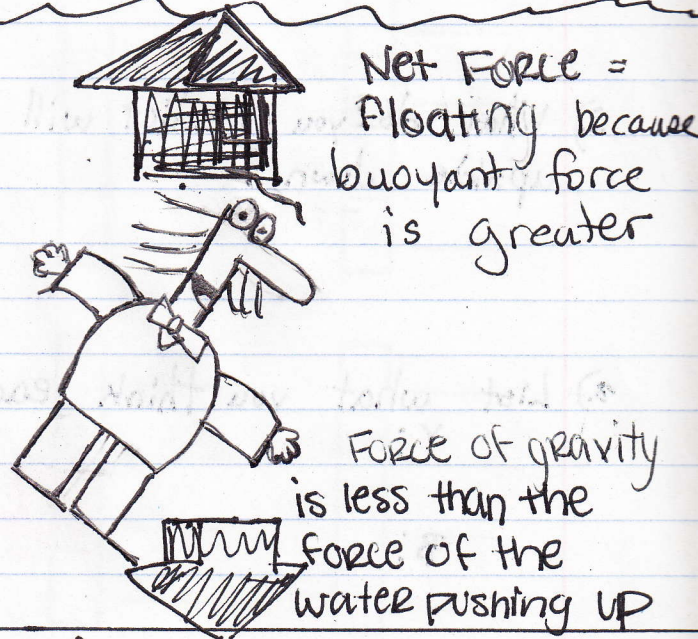 Net Force =
Floating because
buoyant force
is greater
Force of gravity
is less than the
force of the
water pushing up